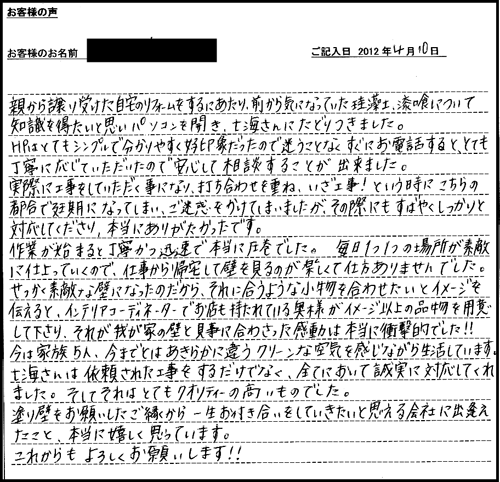 お客様の声
お客様のお名前
ご記入日 2012年4月10日
親から譲り受けた自宅のリフォームをするにあたり、前から気になっていた珪藻土、漆喰について
知識を得たいと思いパソコンを開き、七海さんにたどりつきました。
HPはとてもシンプルで分かりやすく好印象だったので迷うことなくすぐにお電話すると、とても
丁寧に応じていただいたので安心して相談することが出来ました。
実際に工事をしていただく事になり、打ち合わせを重ね、いざ工事!という時にこちらの
都合で延期になってしまい、ご迷惑をかけてしまいましたが、その際にもすばやくしっかりと
対応してくださり、本当にありがたかったです。
作業が始まると丁寧かつ迅速で本当に圧巻でした。 毎日1つ1つの場所が素敵
に仕上っていくので、仕事から帰宅して壁を見るのが楽しくて仕方ありませんでした。
せっかく素敵な壁になったのだから、それに合うような小物を合わせたいとイメージを
伝えると、インテリアコーディネーターでお店も持たれている奥様がイメージ以上の品物を用意
して下さり、それが我が家の壁と見事に合わさった感動は本当に衝撃的でした!!
今は家族5人、今までとはあきらかに違うクリーンな空気を感じながら生活しています。
七海さんは依頼された工事をするだけでなく、全てにおいて誠実に対応してくれ
ました。そしてそれはとてもクオリティーの高いものでした。
塗り壁をお願いしたご縁から一生お付き合いをしていきたいと思える会社に出逢え
たこと、本当に嬉しく思っています。
これからもよろしくお願いします!!